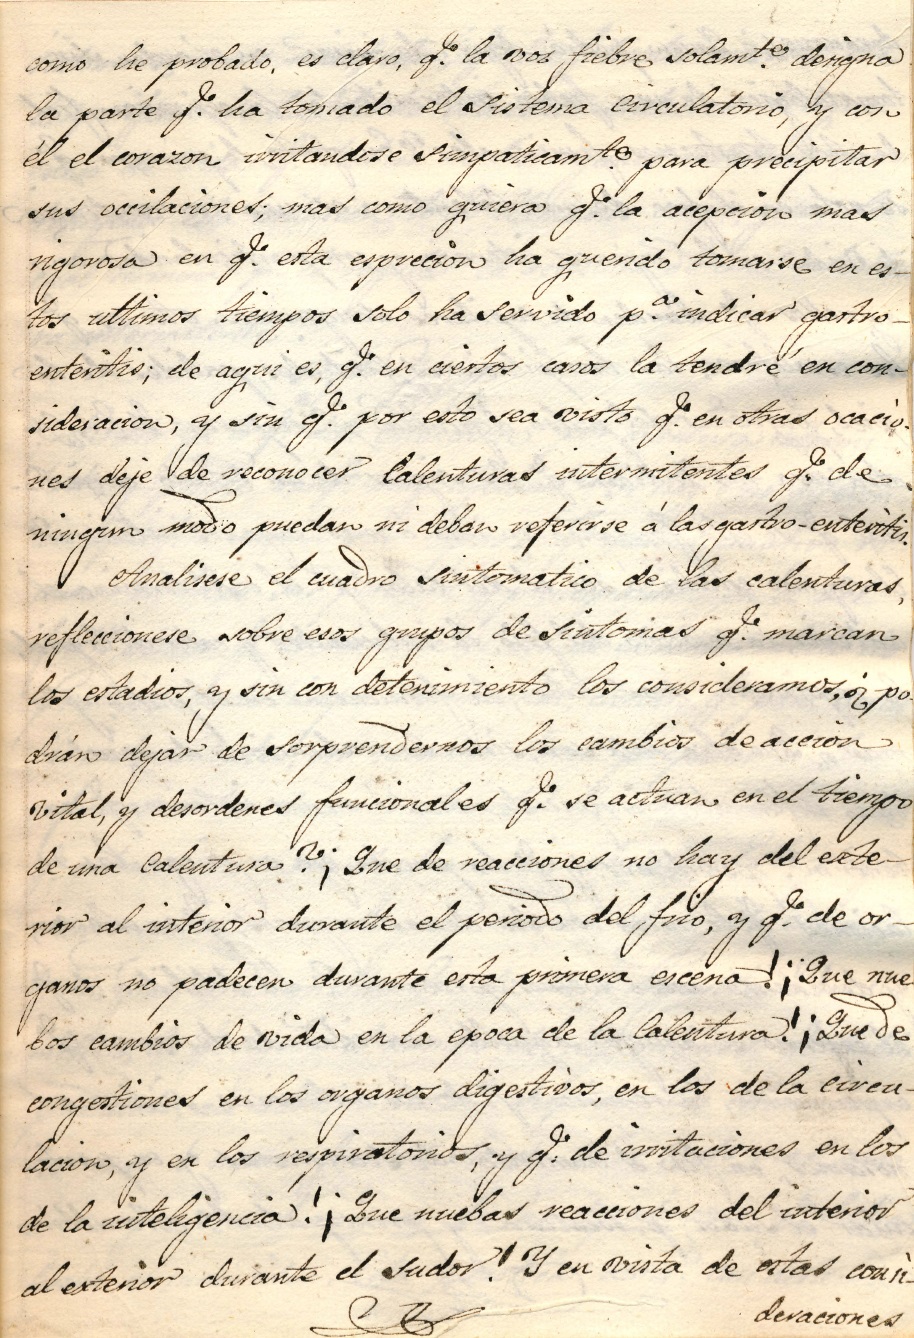 como he probado, es claro, q.e la voz fiebre solam.te designa
la parte q.e ha tomado el Sistema Circulatorio, y con
él el corazon irritandose simpaticam.te para precipitar
sus occilaciones; mas como quiera q.e la acepcion mas
rigorosa en q.e esta esprecion ha querido tomarse en es-
tos ultimos tiempos solo ha servido p.a indicar gastro-
enteritis; de aqui es, q.e en ciertos casos la tendré en con-
sideracion, y sin q.e por esto sea visto q.e en otras ocacio-
nes deje de reconocer Calenturas intermitentes q.e de
ningun modo puedan ni deban referirse á las gastro-enteritis.
Analisese el cuadro sintomatico de las calenturas,
refleccionese sobre esos grupos de Sintomas q.e marcan
los estadios, y si con detenimiento los consideramos, ¿po
drán dejar de sorprendernos los cambios de accion
vital, y desordenes funcionales q.e se actuan en el tiempo
de una Calentura? ¡Que de reacciones no hay del exte-
rior al interior durante el periodo del frio, y q.e de or-
ganos no padecen durante esta primera escena! ¡Que nue
bos cambios de vida en la epoca de la Calentura! ¡Que de
congestiones en los organos digestivos, en los de la circu-
lacion, y en los respiratorios, y q.e de irritaciones en los
de la inteligencia! ¡Que nuebas reacciones del interior
al exterior durante el sudor! Y en vista de estas consi-
deraciones